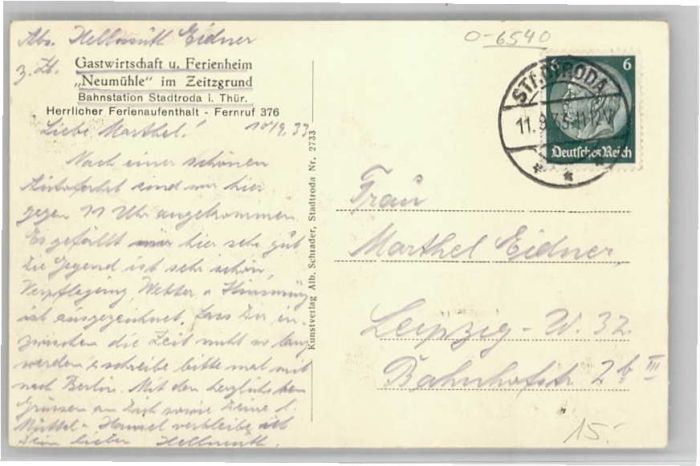 Abs. Hellmuth Eidner
z. Zt.
Gastwirtschaft u. Ferienheim
„Neumühle" im Zeitzgrund
Bahnstation Stadtroda i. Thür.
Herrlicher Ferienaufenthalt - Fernruf 376
Liebe Marthel! 10/9.33
Nach einer schönen
Autofahrt sind wir hier
gegen 11 Uhr angekommen.
Es gefällt mir hier sehr gut
die Gegend ist sehr schön,
Verpflegung Wetter u. Stimmung
ist ausgezeichnet, dass Dir in-
zwischen die Zeit nicht so lang
werden, schreibe bitte mal mit
nach Berlin. Mit den herzlichsten
Grüssen an Dich sowie Deine l.
Mutter Hansel verbleibe ich
Dein lieber Hellmuth.
Kunstverlag Alb. Schrader, Stadtroda Nr. 2733
0-6540
STADTRODA
11.9.33.11-12V
6
Deutsches Reich
Frau
Marthel Eidner,
Leipzig-W. 32
Bahnhofstr. 2b III
15.-